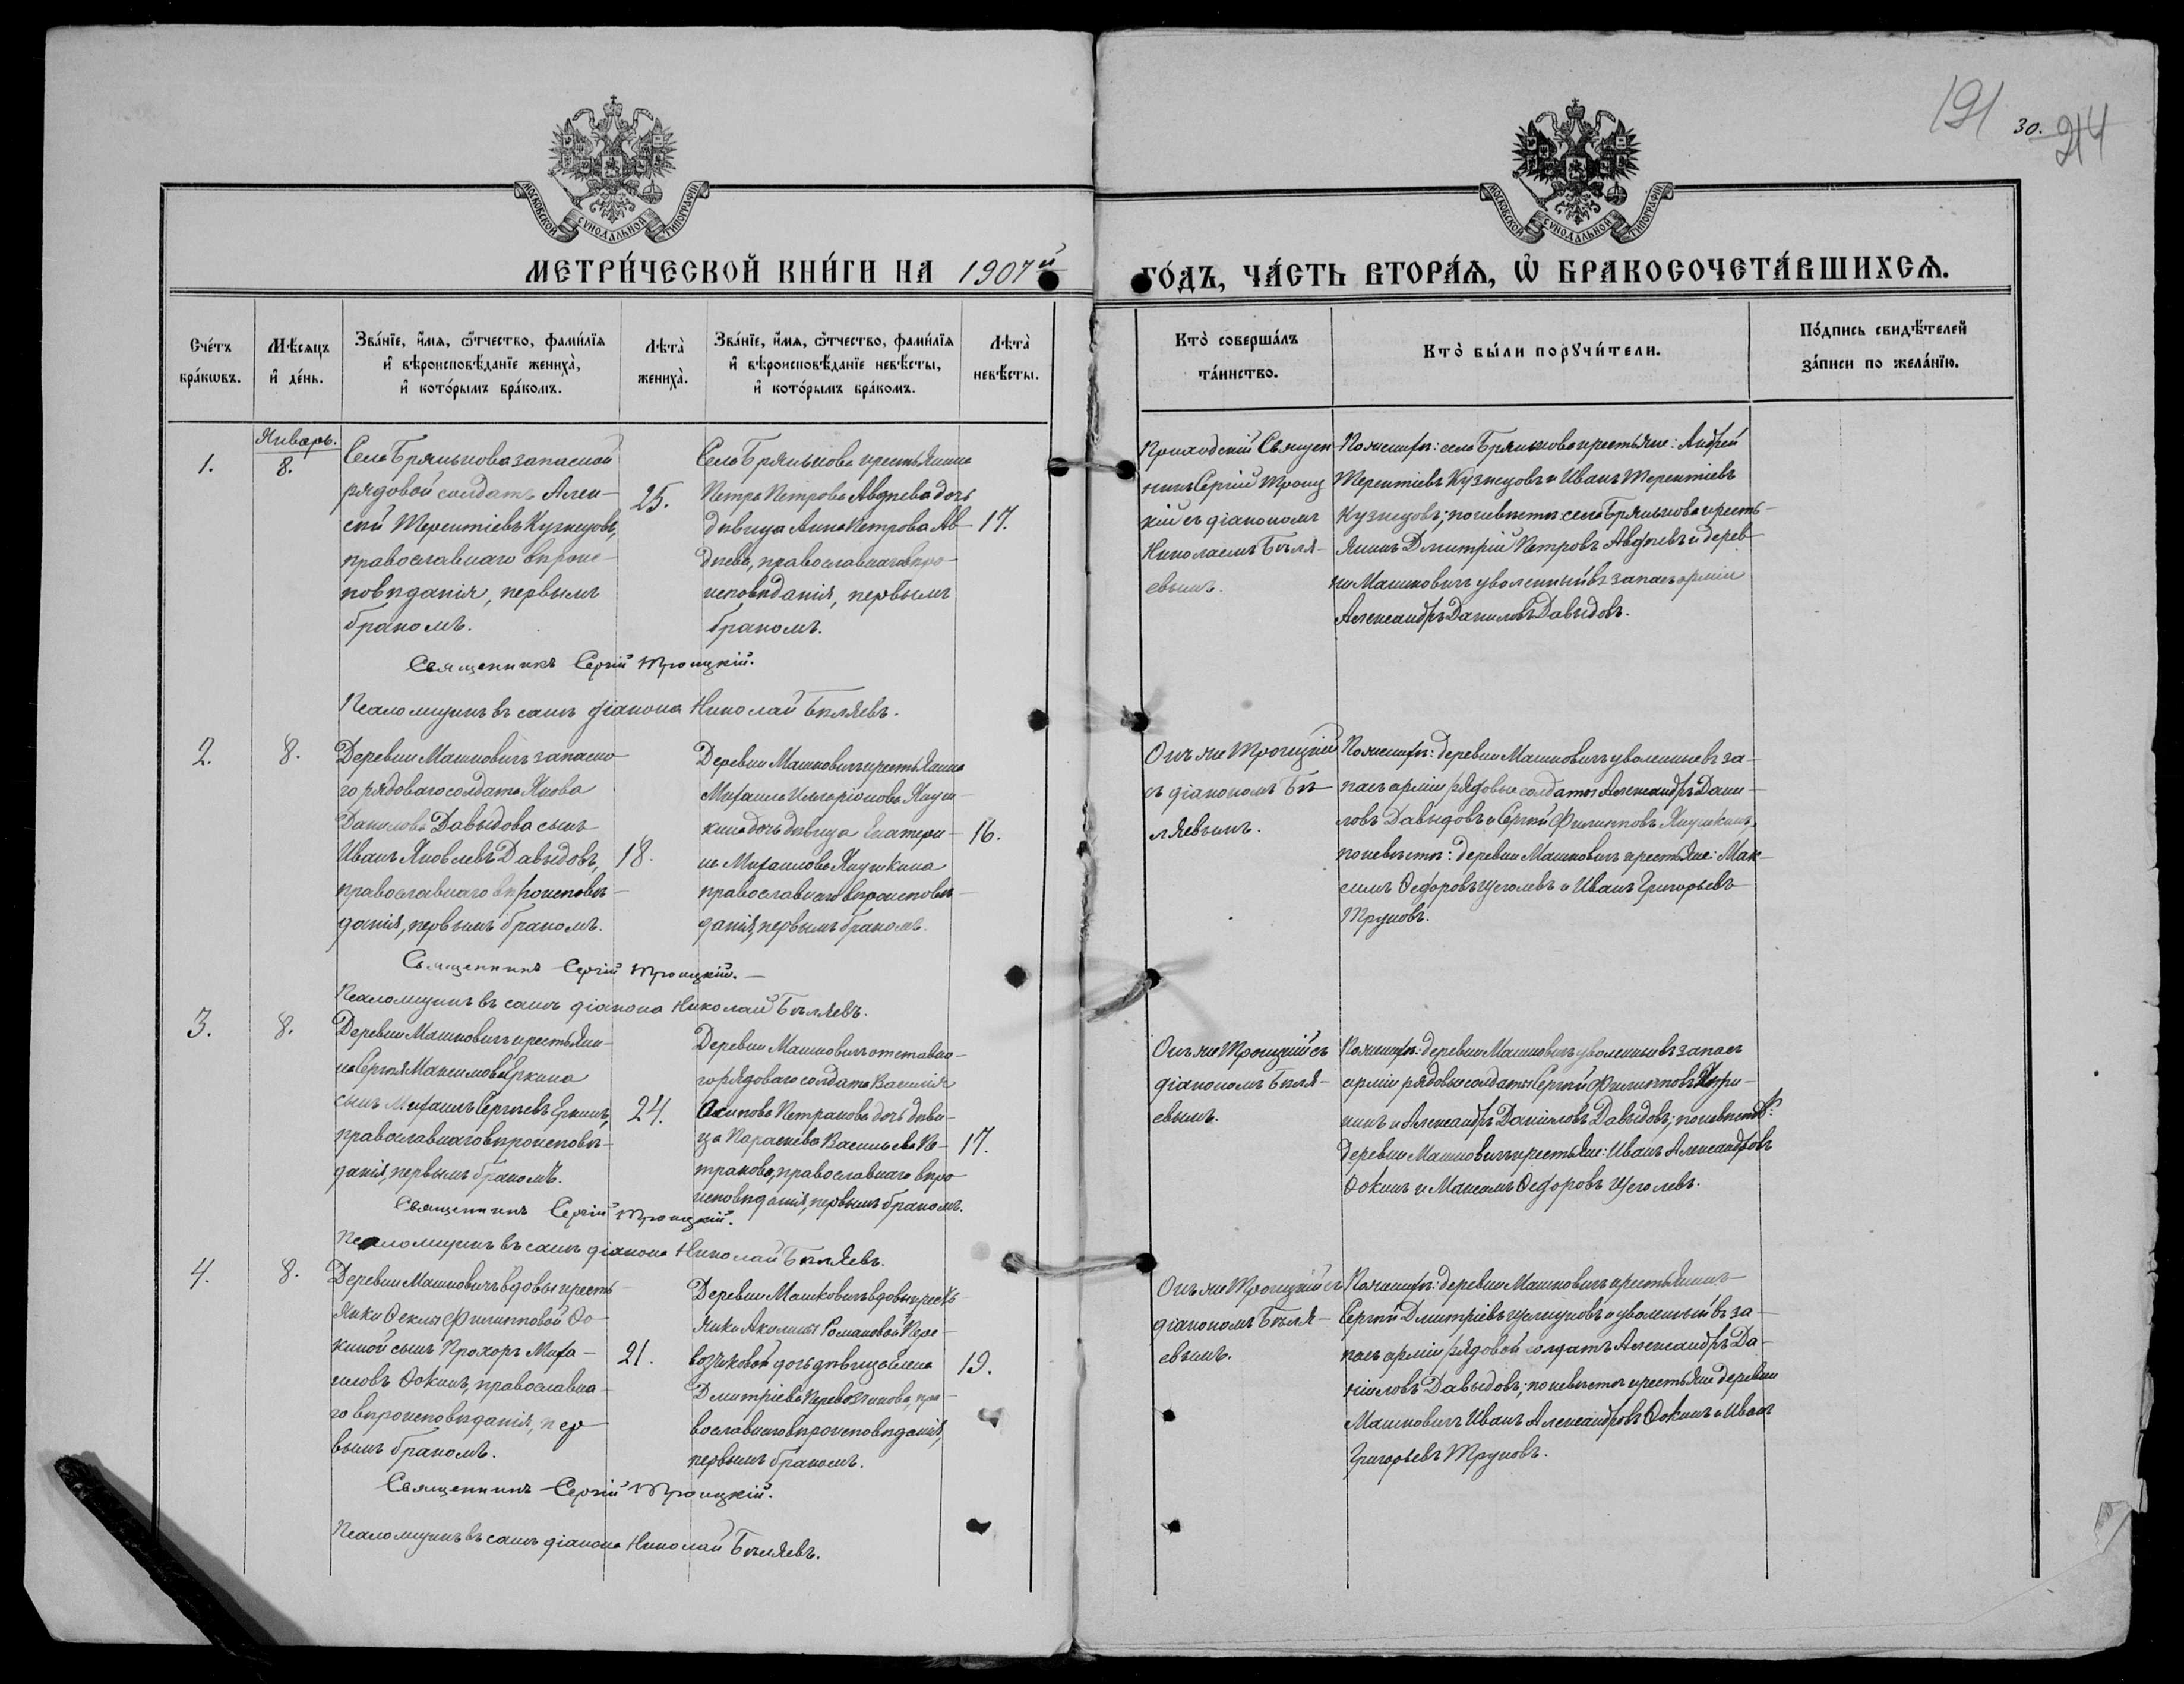 191
30.
214
МОСКОВСКОЙ СѴНОДАЛЬНОЙ ТИПОГРАФІИ
МОСКОВСКОЙ СѴНОДАЛЬНОЙ ТИПОГРАФІИ
МЕТРИ́ЧЕСКОЙ КНИ́ГИ НА 1907й
ГО́ДЪ, ЧА́СТЬ ВТОРА́Ѧ, Ѽ БРАКОСОЧЕТА́ВШИХСѦ.
Сче́тъ бра́кѡвъ.
Мѣ́сѧцъ и҆ де́нь.
Зва́нїе, и҆́мѧ, ѻ҆́тчество, фами́лїѧ и҆ вѣроисповѣ́данїе жениха̀, и҆ кото́рымъ бра́комъ.
Лѣта̀ жениха̀.
Зва́нїе, и҆́мѧ, ѻ҆́тчество, фами́лїѧ и҆ вѣроисповѣ́данїе невѣ́сты, и҆ кото́рымъ бра́комъ.
Лѣта̀ невѣ́сты.
Кто̀ соверша́лъ та́инство.
Кто̀ бы́ли порꙋчи́тели.
По́дпись свидѣ́телей за́писи по жела́нїю.
1.
Январь.
8.
Села Брянькова запасной
рядовой солдатъ Алек-
сѣй Терентіевъ Кузнецовъ,
православнаго вѣроис-
повѣданія, первымъ
бракомъ.
25.
Села Брянькова крестьянина
Петра Петрова Авдѣева дочь
дѣвица Анна Петрова Ав-
дѣева, православнаго вѣро-
исповѣданія, первымъ
бракомъ.
17.
Приходскій Священ
никъ Сергій Троиц
кій съ діакономъ
Николаемъ Бѣля-
евымъ.
По женихѣ: села Брянькова крестьяне: Андрей
Терентіевъ Кузнецовъ и Иванъ Терентіевъ
Кузнецовъ; по невѣстѣ: села Брянькова кресть-
янинъ Дмитрій Петровъ Авдѣевъ и дерев-
ни Машковичъ уволенный въ запасъ арміи
Александръ Даниловъ Давыдовъ.
Священникъ Сергій Троицкій.
Псаломщикъ въ санѣ діакона Николай Бѣляевъ.
2.
8.
Деревни Машковичъ запасно-
го рядоваго солдата Якова
Данилова Давыдова сынъ
Иванъ Яковлевъ Давыдовъ,
православнаго вѣроисповѣ-
данія, первымъ бракомъ.
18.
Деревни Машковичъ крестьянина
Михаила Иларіонова
дочь дѣвица Екатери-
на Михаилова
православнаго вѣроисповѣ-
данія, первымъ бракомъ.
16.
Онъ же Троицкій
съ діакономъ Бѣ-
ляевымъ.
По женихѣ: деревни Машковичъ уволенные въ за-
пасъ арміи рядовые солдаты Александръ Дани-
ловъ Давыдовъ и Сергѣй Филипповъ
по невѣстѣ: деревни Машковичъ крестьяне: Мак-
симъ Ѳедоровъ Щеголевъ и Иванъ Григорьевъ
Труновъ.
Священникъ Сергій Троицкій.
Псаломщикъ въ санѣ діакона Николай Бѣляевъ.
3.
8.
Деревни Машковичъ крестьяни-
на Сергѣя Максимова Еркина
сынъ Михаилъ Сергѣевъ Еркинъ,
православнаго вѣроисповѣ-
данія, первымъ бракомъ.
24.
Деревни Машковичъ отставно-
го рядоваго солдата Василія
Осипова Петракова дочь дѣви-
ца Параскева Васильева Пе-
тракова, православнаго вѣро
исповѣданія, первымъ бракомъ.
17.
Онъ же Троицкій съ
діакономъ Бѣля-
евымъ.
По женихѣ: деревни Машковичъ уволенные въ запасъ
арміи рядовые солдаты Сергѣй Филипповъ
и Александръ Даніиловъ Давыдовъ; по невѣстѣ:
деревни Машковичъ крестьяне: Иванъ Александровъ
Ѳокинъ и Максимъ Ѳедоровъ Щеголевъ.
Священникъ Сергій Троицкій.
Псаломщикъ въ санѣ діакона Николай Бѣляевъ.
4.
8.
Деревни Машковичъ вдовы кресть-
янки Ѳеклы Филипповой Ѳо-
киной сынъ Прохоръ Миха-
иловъ Ѳокинъ, православна-
го вѣроисповѣданія, пер-
вымъ бракомъ.
21.
Деревни Машковичъ вдовы кресть-
янки Акилины Романовой Пере-
возчиковой дочь дѣвица Елена
Дмитріева Перевозчикова, пра-
вославнаго вѣроисповѣданія,
первымъ бракомъ.
19.
Онъ же Троицкій съ
діакономъ Бѣля-
евымъ.
По женихѣ: деревни Машковичъ крестьянинъ
Сергѣй Дмитріевъ и уволенный въ за-
пасъ арміи рядовой солдатъ Александръ Да-
ніиловъ Давыдовъ; по невѣстѣ крестьяне деревни
Машковичъ Иванъ Александровъ Ѳокинъ и Иванъ
Григорьевъ Труновъ.
Священникъ Сергій Троицкій.
Псаломщикъ въ санѣ діакона Николай Бѣляевъ.